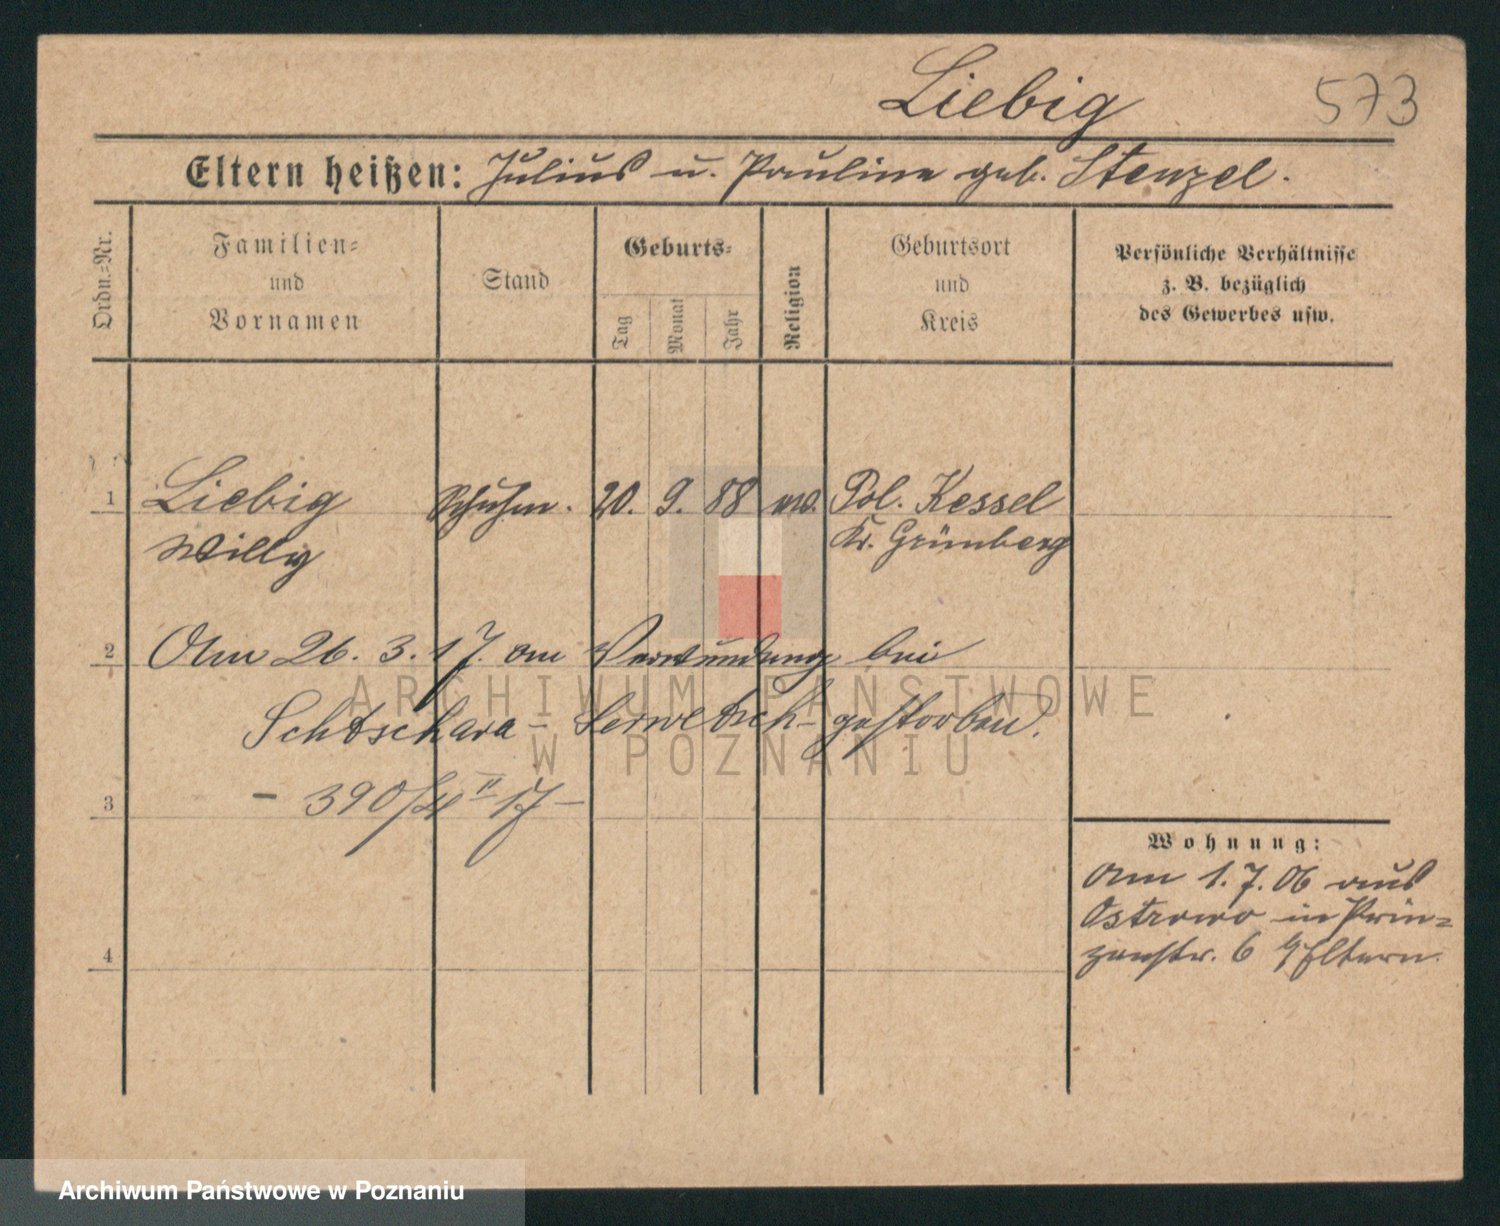 Liebig 573
Eltern heißen: Julius u. Pauline geb. Stenzel.
Ordn.-Nr.
Familien-
und
Vornamen
Stand
Geburts-
Tag
Monat
Jahr
Religion
Geburtsort
und
Kreis
Persönliche Verhältnisse
z. B. bezüglich
des Gewerbes usw.
1 Liebig Schuhm. 20. 9. 88 Pol. Kessel
Willy Kr. Grünberg
2 Am 26. 3. 17. an Verwundung bei
Schtschara - Serwetsch - gestorben.
3 - 390/4 II 17 -
4
Wohnung:
Am 1. 7. 06 aus
Ostrowo in Prin-
zenstr. 6 Eltern.
ARCHIWUM PAŃSTWOWE
W POZNANIU
Archiwum Państwowe w Poznaniu